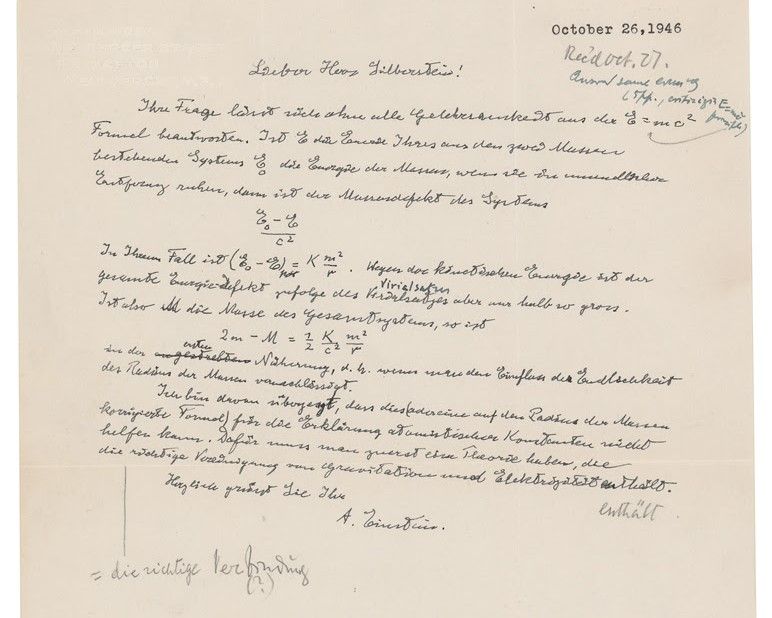 October 26, 1946
Rec'd oct. 27.
Lieber Herr Silberstein!
Ihre Frage lässt sich ohne alle Gelehrsamkeit aus der E = mc²
Formel beantworten. Ist E die Energie Ihres aus den zwei Massen
bestehenden Systems E₀ die Energie der Massen, wenn sie in unendlicher
Entfernung ruhen, dann ist der Massendefekt des Systems
E₀ – E
c²
In Ihrem Fall ist (E₀ – E) = K m²/r. Wegen der kinetischen Energie ist der
Virialsatzes
gesamte Energie-Defekt zufolge des Virialsatzes aber nur halb so gross.
Ist also M die Masse des Gesamtsystems, so ist
2m – M = 1/2 K/c² m²/r
ersten
in der Näherung, d. h. wenn man den Einfluss der Endlichkeit
des Radius der Massen vernachlässigt.
Ich bin davon überzeugt, dass dies (oder eine auf den Radius der Massen
korrigierte Formel) für die Erklärung atomistischer Konstanten nicht
helfen kann. Dafür muss man zuerst eine Theorie haben, die
die richtige Vereinigung von Gravitation und Elektrizität enthält.
enthält
Herzlich grüsst Sie Ihr
A. Einstein.
= die richtige Verbindung
(?)